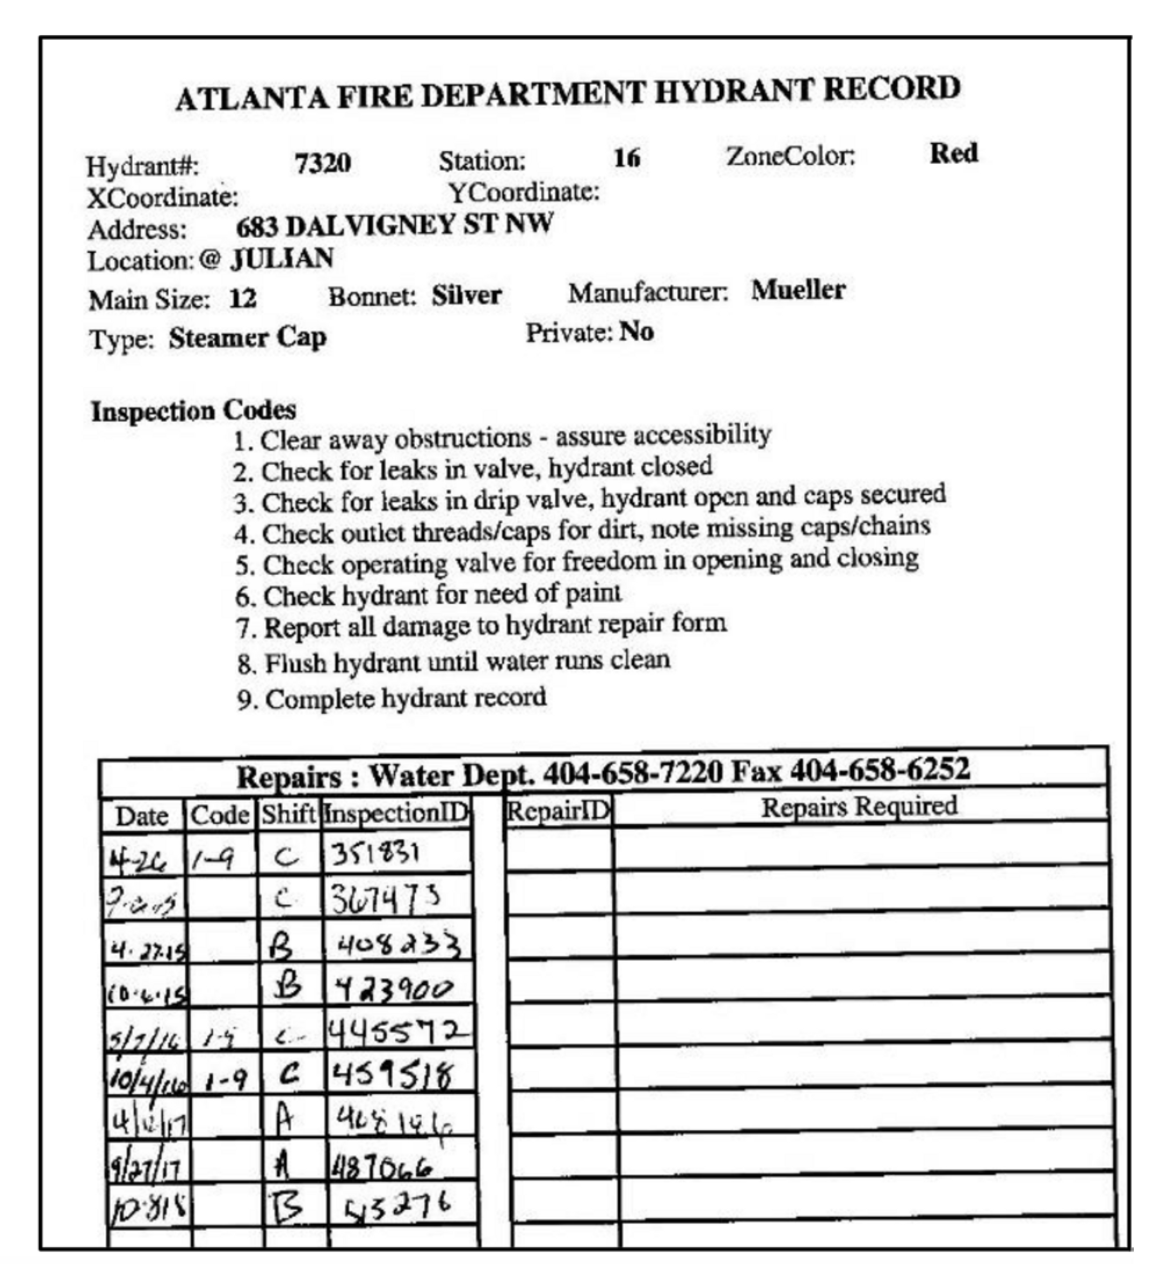 ATLANTA FIRE DEPARTMENT HYDRANT RECORD
Hydrant#: 7320 Station: 16 ZoneColor: Red
XCoordinate: YCoordinate:
Address: 683 DALVIGNEY ST NW
Location: @ JULIAN
Main Size: 12 Bonnet: Silver Manufacturer: Mueller
Type: Steamer Cap Private: No
Inspection Codes
1. Clear away obstructions - assure accessibility
2. Check for leaks in valve, hydrant closed
3. Check for leaks in drip valve, hydrant open and caps secured
4. Check outlet threads/caps for dirt, note missing caps/chains
5. Check operating valve for freedom in opening and closing
6. Check hydrant for need of paint
7. Report all damage to hydrant repair form
8. Flush hydrant until water runs clean
9. Complete hydrant record
Repairs : Water Dept. 404-658-7220 Fax 404-658-6252
Date Code Shift InspectionID RepairID Repairs Required
4-26 1-9 C 351831
C 367473
4.27.15 B 408233
10.6.15 B 423900
5/7/16 C 445572
10/4/16 1-9 C 459518
A
9/27/17 A 487066
10-8-18 B 513276